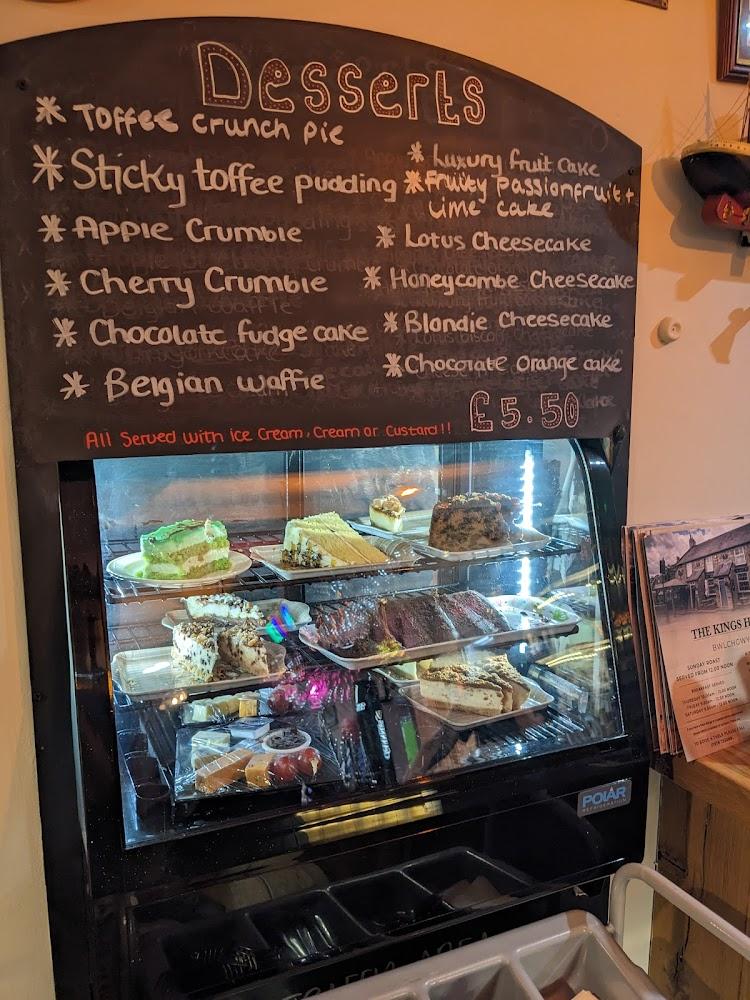 Desserts
* Toffee crunch pie
* Sticky toffee pudding
* Apple Crumble
* Cherry Crumble
* Chocolate fudge cake
* Belgian waffle
* Luxury fruit cake
* Fruity Passionfruit +
Lime cake
* Lotus Cheesecake
* Honeycombe Cheesecake
* Blondie Cheesecake
* Chocolate Orange cake
£5.50
All Served with ice Cream, Cream or Custard!!
POLAR
REFRIGERATION
THE KINGS H
BWLCHGWY
SUNDAY ROAST
SERVED FROM 12.00 NOON
BREAKFAST SERVED